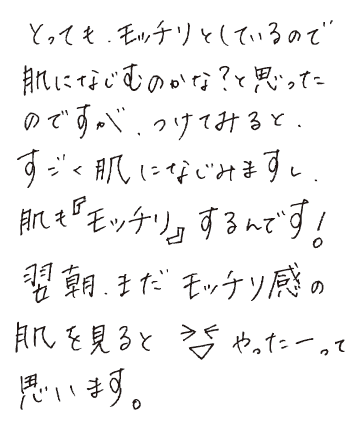 とっても、モッチリとしているので
肌になじむのかな?と思った
のですが、つけてみると、
すごく肌になじみますし、
肌も『モッチリ』するんです!
翌朝、まだモッチリ感の
肌を見ると ><やったーって
思います。